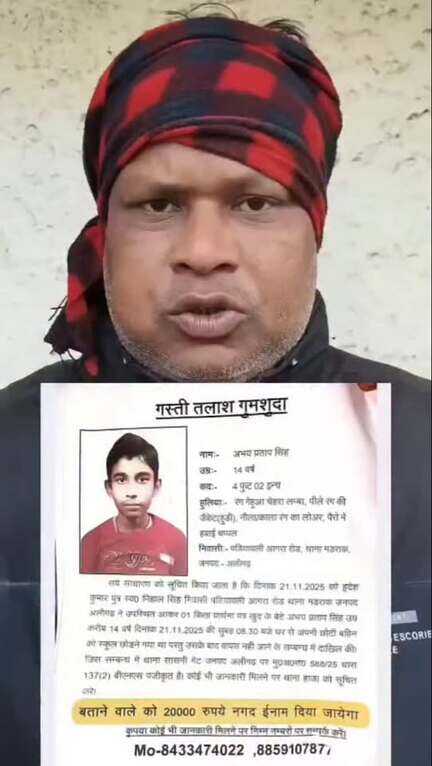 गस्ती तलाश गुमशुदा
नाम:- अभय प्रताप सिंह
उम्र:- 14 वर्ष
कद:- 4 फुट 02 इन्च
हुलिया:- रंग गेहूआ चेहरा लम्बा, पीले रंग की
जैकेट(हुडी), नीला/काला रंग का लोअर, पैरो में
हवाई चप्पल
निवासी:- पडियावली आगरा रोड, थाना मडराक,
जनपद:- अलीगढ़
सर्व साधारण को सूचित किया जाता है कि दिनांक 21.11.2025 को हृदेश
कुमार पुत्र स्व0 निहाल सिंह निवासी पडियावली आगरा रोड थाना मडराक जनपद
अलीगढ ने उपस्थित आकर 01 किता प्रार्थना पत्र खुद के बेटे अभय प्रताप सिंह उम्र
करीब 14 वर्ष दिनांक 21.11.2025 की सुबह 08.30 बजे घर से अपनी छोटी बहिन
को स्कूल छोडने गया था परंतु उसके बाद वापस नही आने के सम्बन्ध में दाखिल की।
जिस सम्बन्ध मे थाना सासनी गेट जनपद अलीगढ पर मु0अ0सं0 588/25 धारा
137(2) बीएनएस पंजीकृत है। कोई भी जानकारी मिलने पर थाना हाजा को सूचित
करे।
बताने वाले को 20000 रुपये नगद ईनाम दिया जायेगा
कृपया कोई भी जानकारी मिलने पर निम्न नम्बरों पर सम्पर्क करें।
Mo-8433474022 ,885910787
ESCORIE